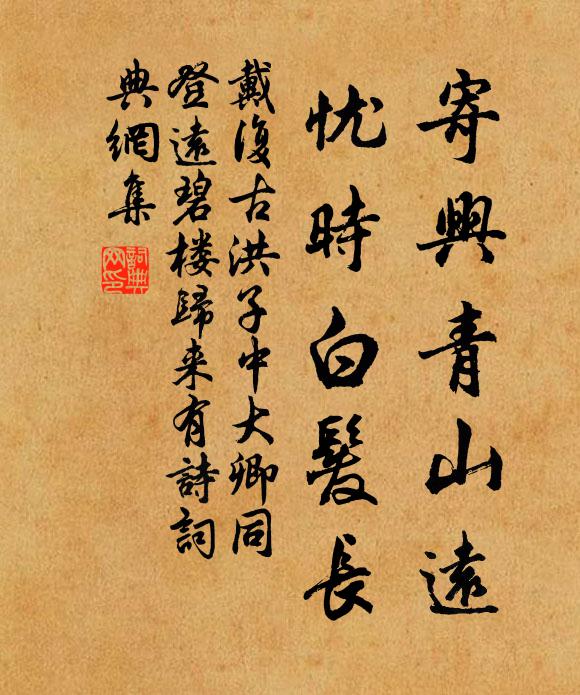 寄興青山遠
忧時白髮長
戴復古洪子中大卿同
登遠碧楼歸来有詩詞
典網集
詞典
网印